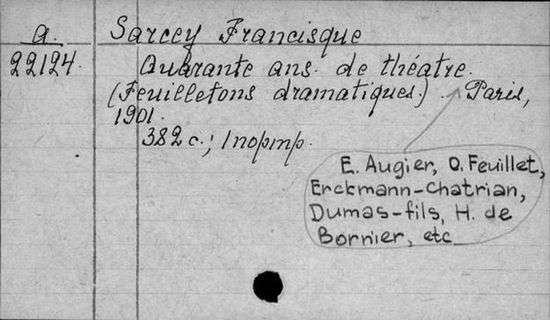 a. Sarcey Francisque
22124. Quarante ans de théatre.
(Feuilletons dramatiques.) Paris,
1901.
382 c.; 1 портр.
E. Augier, O. Feuillet,
Erckmann-Chatrian,
Dumas-fils, H. de
Bornier, etc